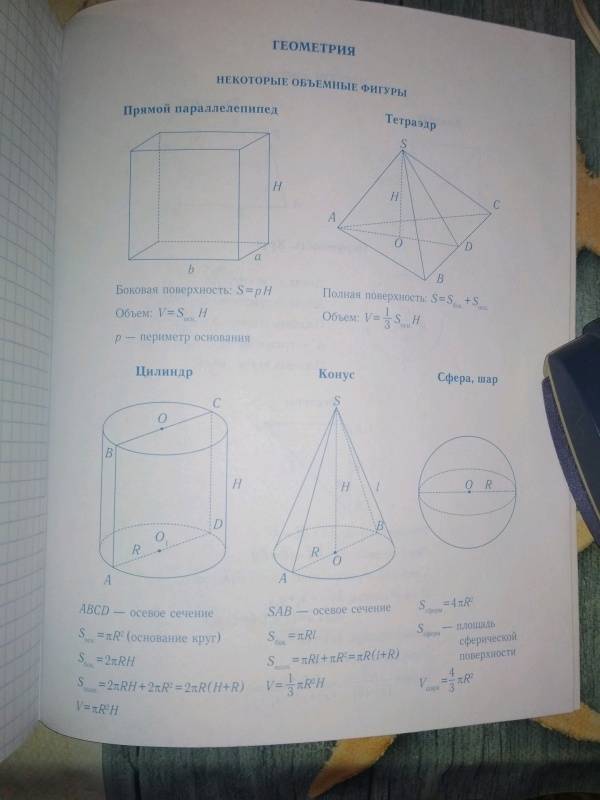 ГЕОМЕТРИЯ
НЕКОТОРЫЕ ОБЪЕМНЫЕ ФИГУРЫ
Прямой параллелепипед
H
a
b
Боковая поверхность: S=pH
Объем: V=Sосн.H
p — периметр основания
Тетраэдр
S
H
A
C
O
D
B
Полная поверхность: S=Sбок.+Sосн.
Объем: V=1/3 Sосн.H
Цилиндр
C
O
B
H
D
O₁
R
A
ABCD — осевое сечение
Sосн.=πR² (основание круг)
Sбок.=2πRH
Sполн.=2πRH+2πR²=2πR(H+R)
V=πR²H
Конус
S
H
l
B
R
O
A
SAB — осевое сечение
Sбок.=πRl
Sполн.=πRl+πR²=πR(l+R)
V=1/3 πR²H
Сфера, шар
O R
Sсферы=4πR²
Sсферы — площадь
сферической
поверхности
Vшара=4/3 πR²